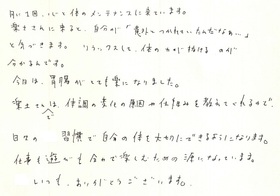 月に1回、心と体のメンテナンスに来ています。
楽士さんに来ると、自分が「意外とつかれていたんだなあ…」
と気づきます。リラックスして、体の力が抜けるのが
分かるんです。
今回は、胃腸がとても楽になりました。
楽士さんは、体調の変化の原因や仕組みを教えてくれるので、
日々の 習慣で自分の体を大切にできるようになります。
仕事も遊びも全力で楽しむための源になっています。
いつも、ありがとうございます。